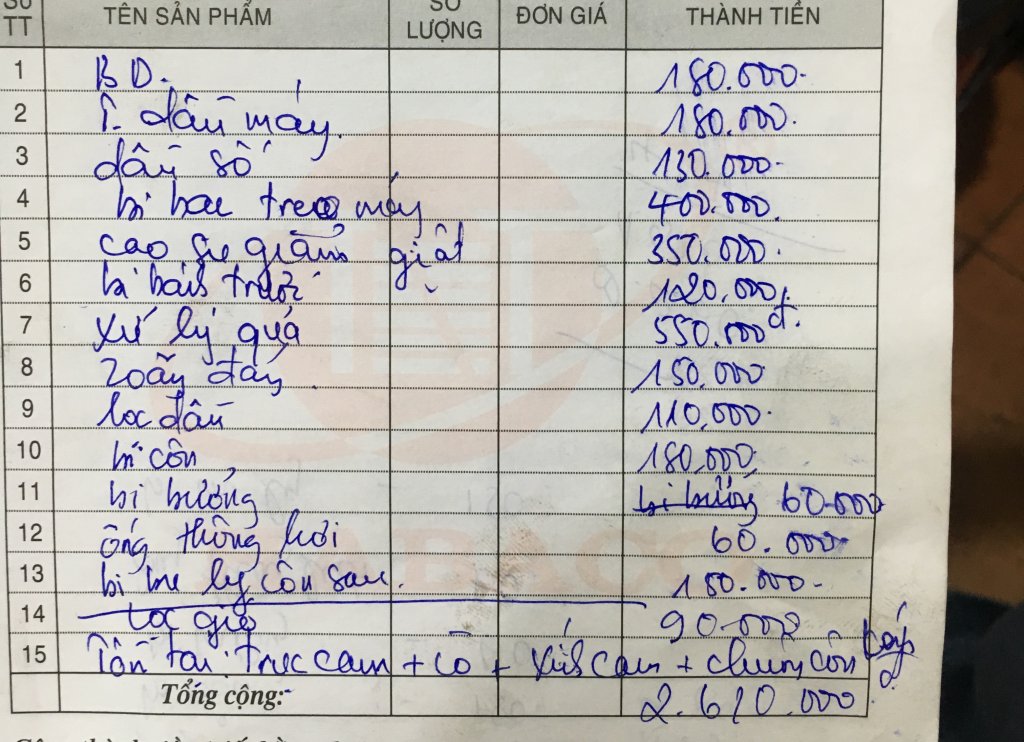 Số TT TÊN SẢN PHẨM SỐ LƯỢNG ĐƠN GIÁ THÀNH TIỀN
1 BD. 180.000
2 T. dầu máy. 180.000
3 dầu số 130.000
4 bi bac treo máy 400.000
5 cao su giảm giật 350.000
6 bi bánh trước 120.000
7 xử lý quả 550.000 đ.
8 zoăng đáy. 150.000
9 lọc dầu 110.000
10 bi côn 180.000
11 bi bướng 60.000
12 ống thông hơi 60.000
13 bi ly côn sau. 180.000
14 lọc gió 90.000
15 Tồn tại: trục cam + cò + xích cam + chuông côn
Tổng cộng: 2.610.000